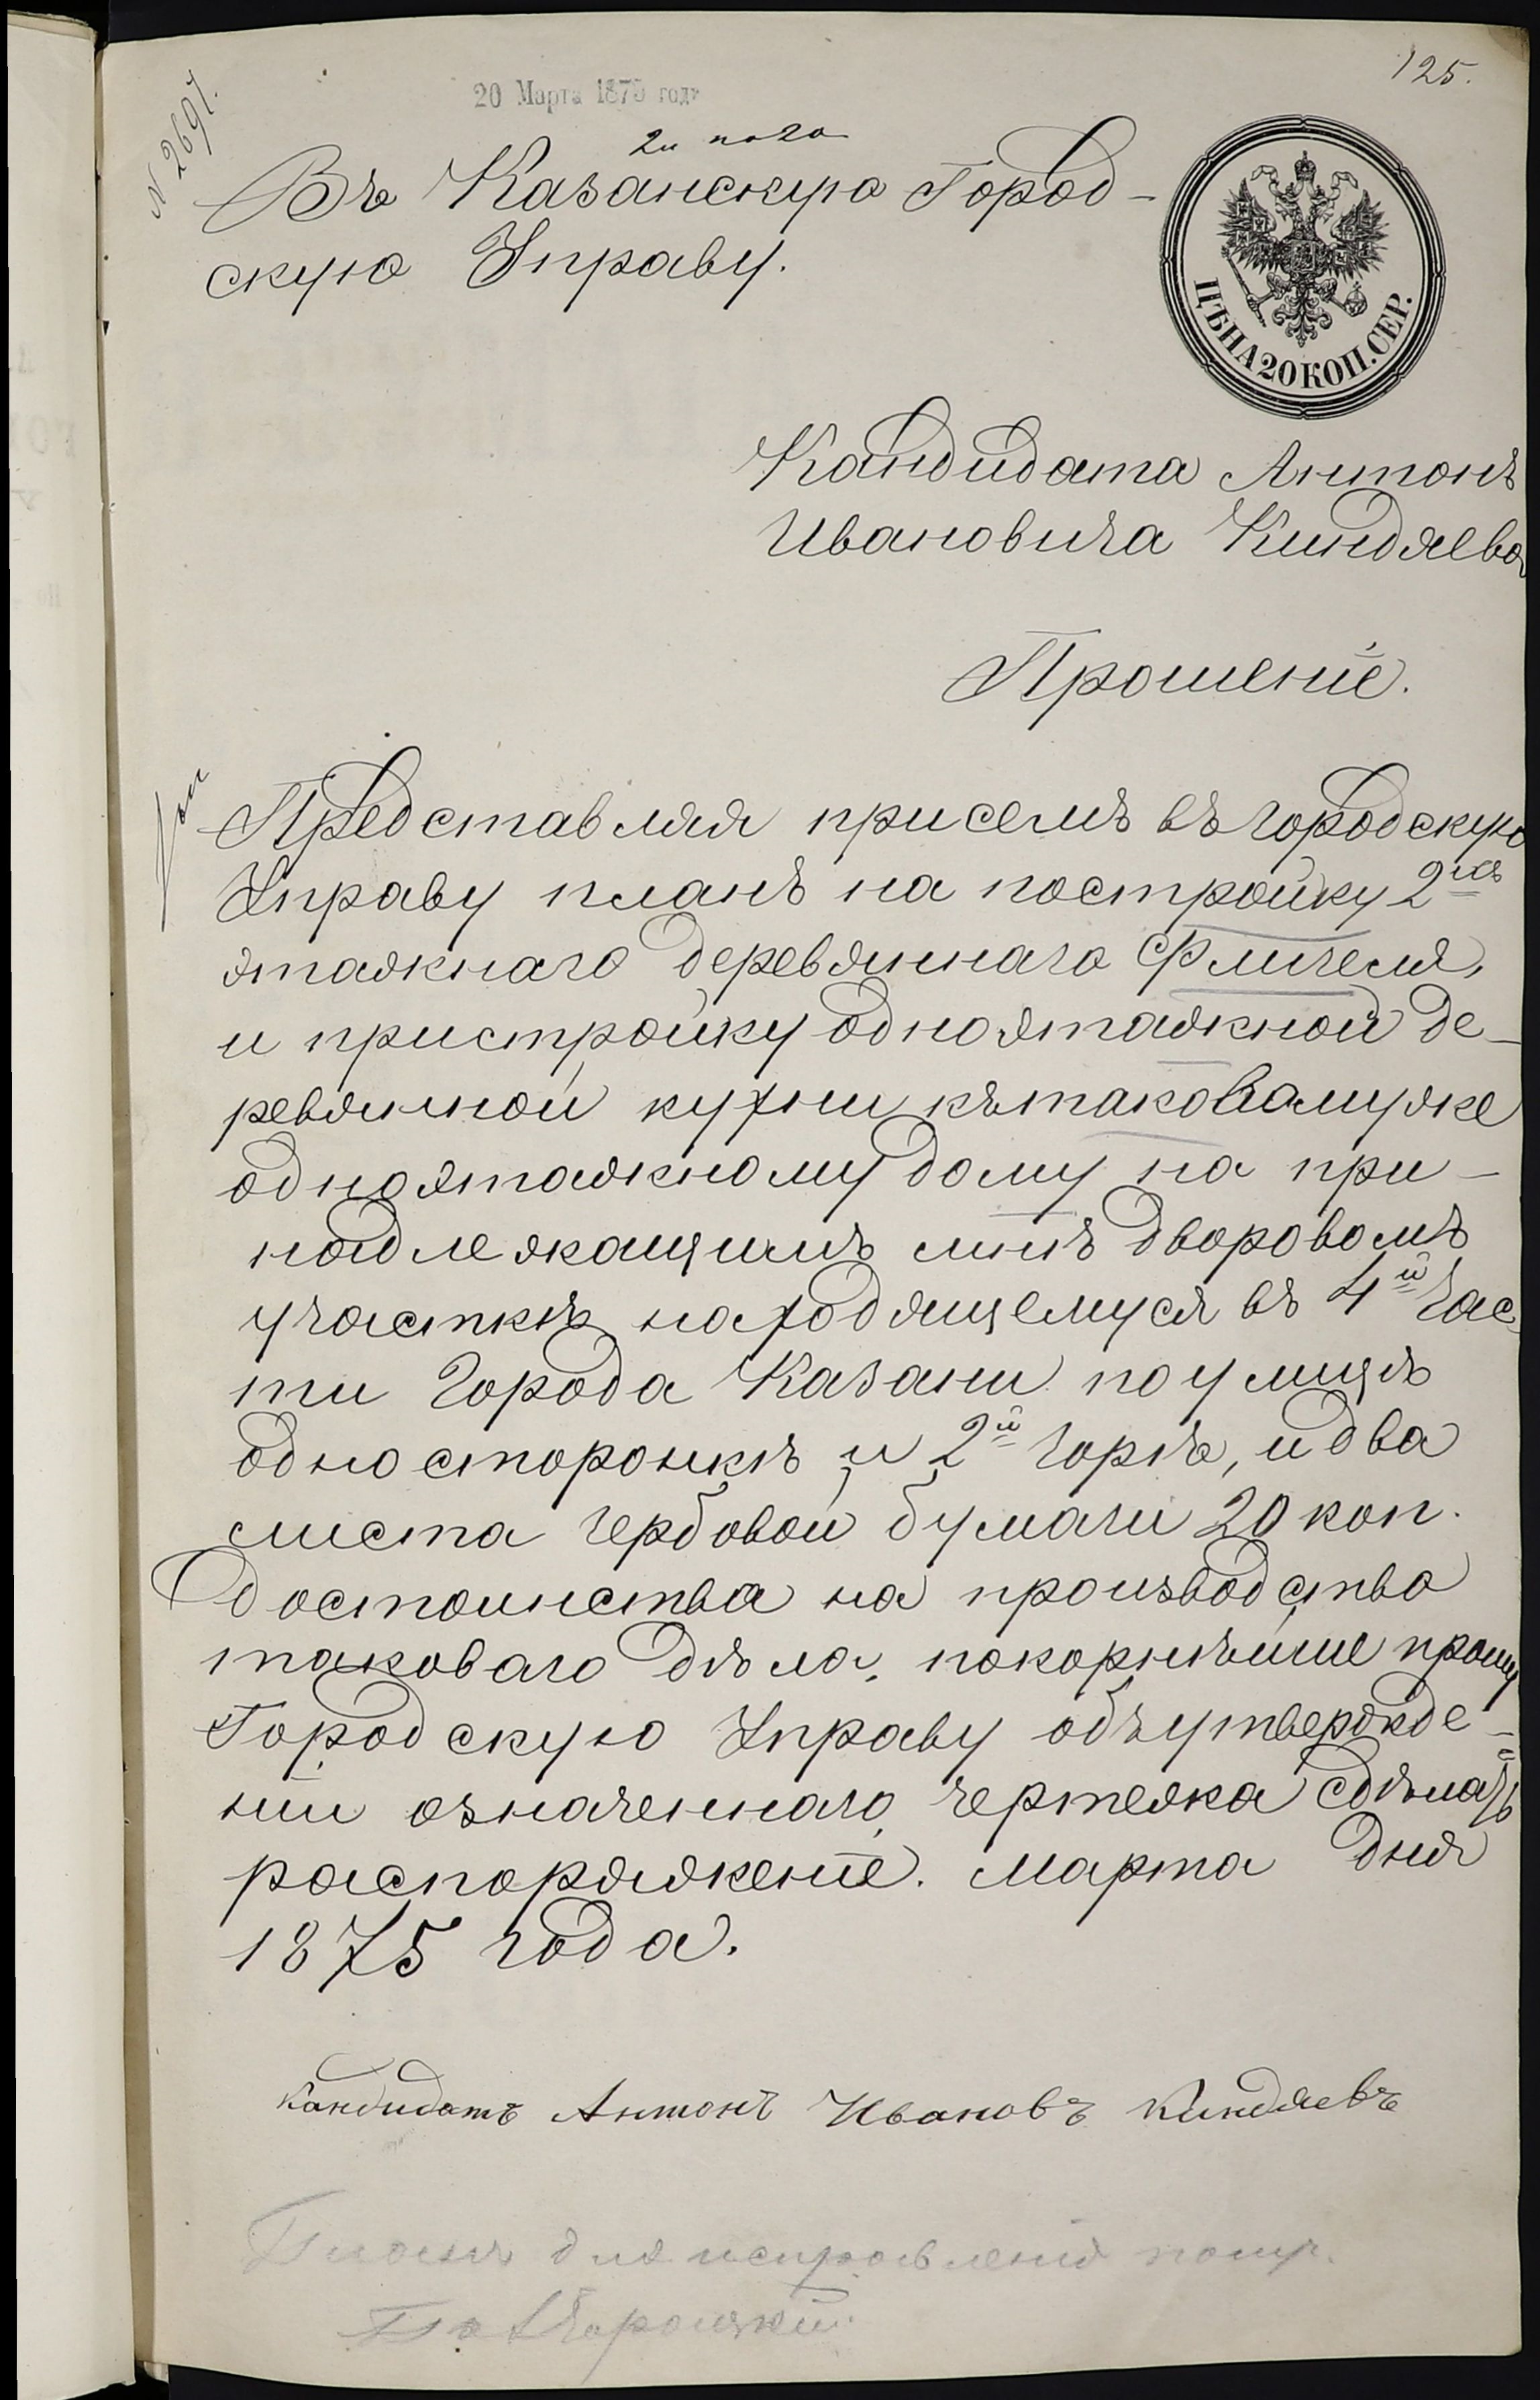 125.
№ 2697.
20 Марта 1875 года
Въ Казанскую Город-
скую Управу.
ЦѢНА 20 КОП. СЕР.
Кандидата Антонъ
Ивановича Киндяева
Прошеніе.
Представляя присемъ въ городскую
Управу планъ на постройку 2ухъ
этажнаго деревяннаго Флигеля,
и пристройку одноэтажной де-
ревянной кухни кътаковамуже
одноэтажному дому на при-
надлежащимъ мнѣ дворовомъ
участкѣ находящемуся въ 4й Час
ти Города Казани по улицѣ
одно сторонкѣ и 2й горѣ, и два
листа гербовой бумаги 20 коп.
достоинства на производство
таковаго дѣла, покорнѣйше прошу
Городскую Управу объ утвержде-
ніи означеннаго чертежа сдѣлать
распоряженіе. Марта дня
1875 года.
Кандидатъ Антонъ Ивановъ Киндяевъ
для исправленія